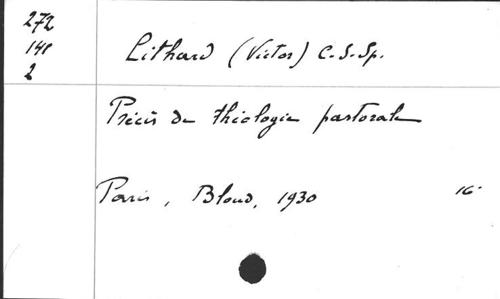 272
148
2
Lithard (Victor) C.S.Sp.
Précis de théologie pastorale
Paris, Bloud, 1930 16°